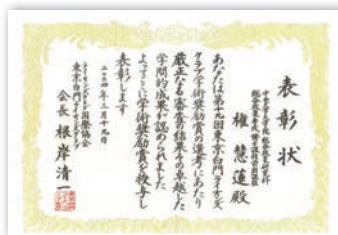 表彰状
中央大学大学院 総合政策研究科
総合政策専攻 博士課程後期課程
権 慧蓮 殿
あなたは第十九回東京白門ライオンズ
クラブ学術奨励賞の選考にあたり
厳正なる審査の結果その卓越した
学問的成果が認められました
よってここに学術奨励賞を授与し
表彰します
二〇二四年三月十九日
ライオンズクラブ国際協会
東京白門ライオンズクラブ
会長 根岸清一